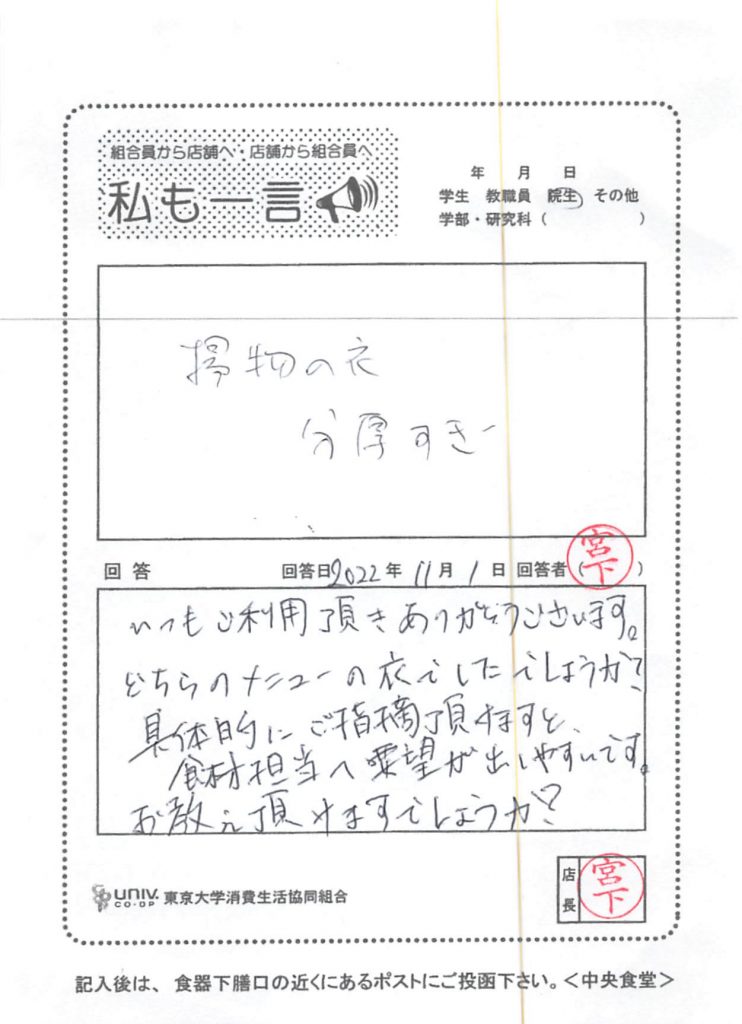 組合員から店舗へ・店舗から組合員へ
私も一言
年 月 日
学生 教職員 院生 その他
学部・研究科（ ）
揚物の衣
分厚すぎー
回答 回答日2022年 11月 1日 回答者（宮下）
いつもご利用頂きありがとうございます。
どちらのメニューの衣でしたでしょうか？
具体的にご指摘頂けますと、
食材担当へ要望が出しやすいです。
お教え頂けますでしょうか？
UNIV. CO-OP 東京大学消費生活協同組合
店長 宮下
記入後は、食器下膳口の近くにあるポストにご投函下さい。＜中央食堂＞